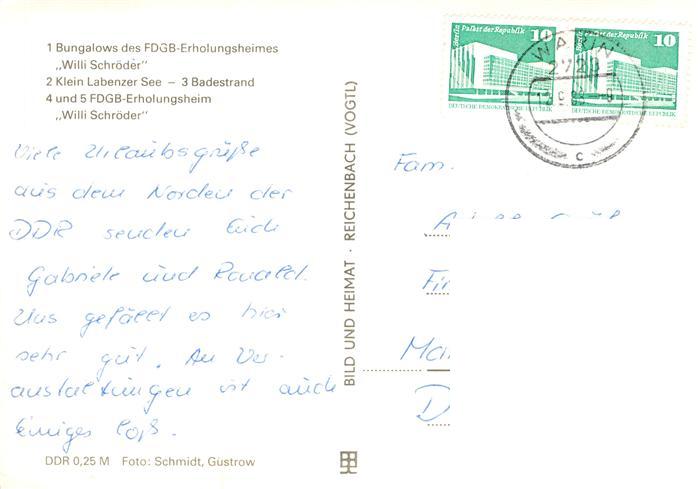 1 Bungalows des FDGB-Erholungsheimes
„Willi Schröder"
2 Klein Labenzer See – 3 Badestrand
4 und 5 FDGB-Erholungsheim
„Willi Schröder"
Viele Urlaubsgrüße
aus dem Norden der
DDR senden Euch
Gabriele und Ronald.
Uns gefällt es hier
sehr gut. An Ver-
anstaltungen ist auch
Einiges loß.
DDR 0,25 M Foto: Schmidt, Güstrow
BILD UND HEIMAT · REICHENBACH (VOGTL)
Berlin Palast der Republik 10
DEUTSCHE DEMOKRATISCHE REPUBLIK
Berlin Palast der Republik 10
DEUTSCHE DEMOKRATISCHE REPUBLIK
WARIN
c
Fam.